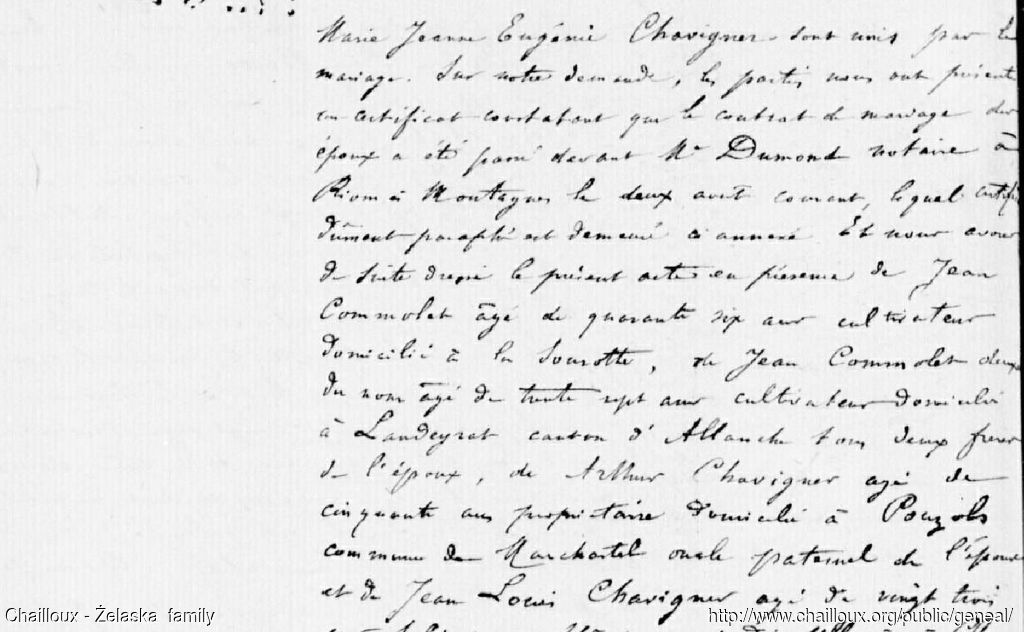 Marie Jeanne Eugénie Chavigner sont unis par le
mariage. Sur notre demande, les parties nous ont présenté
un certificat constatant que le contrat de mariage des
époux a été passé devant Me Dumond notaire à
Riom ès Montagnes le deux août courant, lequel certificat
dûment paraphé est demeuré ci annexé Et nous avons
de suite dressé le présent acte en présence de Jean
Commolet âgé de quarante six ans cultivateur
domicilié à la Sourotte, de Jean Commolet deux
du nom âgé de trente sept ans cultivateur domicilié
à Landeyrat canton d'Allanche tous deux frères
de l'époux, de Arthur Chavigner agé de
cinquante ans propriétaire domicilié à Pouzols
commune de Marchastel oncle paternel de l'épouse
et de Jean Louis Chavigner agé de vingt trois
Chailloux - Żelaska family
http://www.chailloux.org/public/geneal/